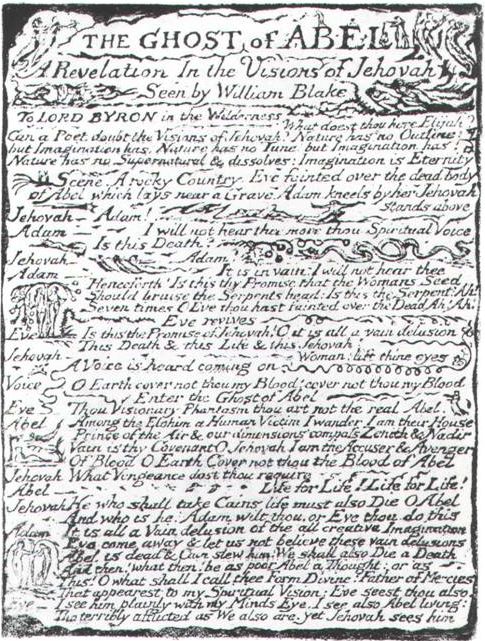 THE GHOST of ABEL
A Revelation In the Visions of Jehovah
Seen by William Blake
To LORD BYRON in the Wilderness
What doest thou here Elijah?
Can a Poet doubt the Visions of Jehovah? Nature has no Outline:
but Imagination has. Nature has no Tune: but Imagination has!
Nature has no Supernatural & dissolves: Imagination is Eternity
Scene. A rocky Country. Eve fainted over the dead body
of Abel which lays near a Grave. Adam kneels by her Jehovah
stands above
Jehovah — Adam!
Adam — I will not hear thee more thou Spiritual Voice
Is this Death?
Jehovah — Adam!
Adam — It is in vain: I will not hear thee
Henceforth! Is this thy Promise that the Womans Seed
Should bruise the Serpents head: Is this the Serpent? Ah!
Seven times O Eve thou hast fainted over the Dead Ah! Ah!
Eve revives
Eve — Is this the Promise of Jehovah! O it is all a vain delusion
This Death & this Life & this Jehovah!
Jehovah — Woman! lift thine eyes
A Voice is heard coming on
Voice O Earth cover not thou my Blood! cover not thou my Blood
Enter the Ghost of Abel
Eve Thou Visionary Phantasm thou art not the real Abel.
Abel Among the Elohim a Human Victim I wander I am their House
Prince of the Air & our dimensions compass Zenith & Nadir
Vain is thy Covenant O Jehovah I am the Accuser & Avenger
Of Blood O Earth Cover not thou the Blood of Abel
Jehovah What Vengeance dost thou require
Abel — Life for Life! Life for Life!
Jehovah He who shall take Cains life must also Die O Abel
And who is he? Adam wilt thou, or Eve thou do this
Adam It is all a Vain delusion of the all creative Imagination
Eve come away & let us not believe these vain delusions
Abel is dead & Cain slew him! We shall also Die a Death
And then! what then? be as poor Abel a Thought: or as
This! O what shall I call thee Form Divine! Father of Mercies
That appearest to my Spiritual Vision: Eve seest thou also
Eve I see him plainly with my Minds Eye. I see also Abel living:
Tho terribly afflicted as We also are. yet Jehovah sees him